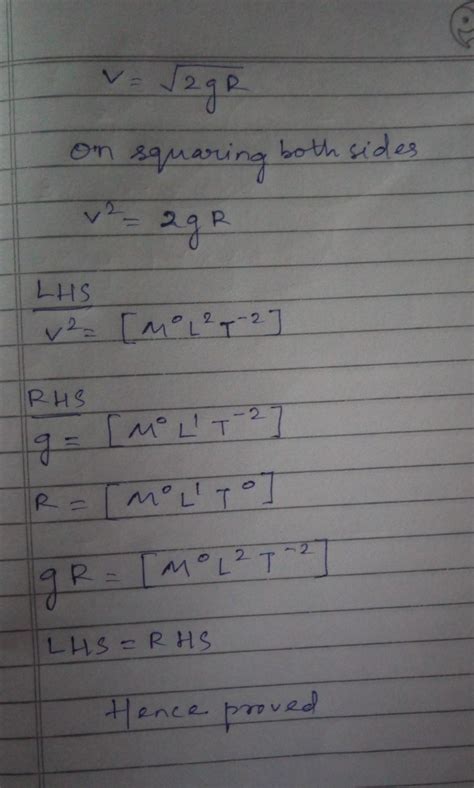 v = √2gR
On squaring both sides
v² = 2gR
LHS
v² = [M⁰L²T⁻²]
RHS
g = [M⁰L¹T⁻²]
R = [M⁰L¹T⁰]
gR = [M⁰L²T⁻²]
LHS = RHS
Hence proved